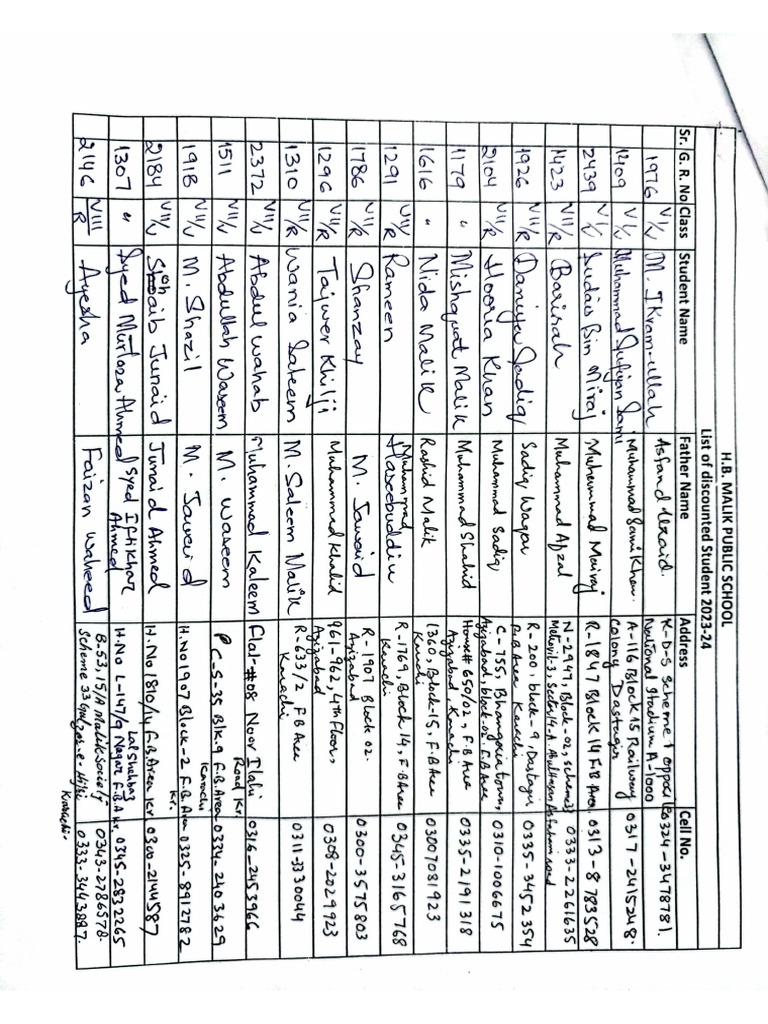 H.B. MALIK PUBLIC SCHOOL
List of discounted Student 2023-24
Sr. G. R. No Class Student Name Father Name Address Cell No.
1976 V/W M. Ikram-ullah Asfand Uzaid. K-D-S Scheme 1 opposite
National Stadium A-1000 0324-3478781.
1409 V/W Muhammad Sufiyan Sami Muhammad Sami Khan. A-116 Block 15 Railway
Colony Dastagir 0317-2415248.
2439 V/W Sudais Bin Miraj Muhammad Meiraj R-1847 Block 14 F.B Area 0313-8783528
1423 VII/R Barirah Muhammad Afzal N-2947, Block-02, Scheme 33
Metrovil-3, Sector 14-A, Abulhasan Asfahani road 0333-2261635
1926 VII/W Daniya Sadiq Sadiq Waqar R-200, block-9, Dastagir
F.B Area Karachi 0335-3452354
2104 VII/R Hooria Khan Muhammad Sadiq C-755, Bhangoria town,
Azizabad, block-02, F.B Area 0310-1006675
1179 " Mishquat Malik Muhammad Shahid House# 650/02, F.B Area
Azizabad, Karachi 0335-2191318
1616 " Nida Malik Rashid Malik 1360, Block-15, F.B Area
Karachi 03007081923
1291 VII/R Rameen Muhammad
Haseebuddin R-1769, Block 14, F.B Area
Karachi 0345-3165768
1786 VII/R Shanzay M. Jawaid R-1907 Block 02.
Azizabad 0300-3575803
1296 VII/R Tajwer Khilji Muhammad Khalid 961-962, 4th Floor,
Azizabad 0308-2029923
1310 VII/R Wania Saleem M. Saleem Malik R-633/2 F B Area
Karachi 0311-3330044
2372 VII/W Abdul Wahab Muhammad Kaleem Flat-#08 Noor Ilahi
Road Kr. 0316-2453966
1511 VII/W Abdullah Waseem M. Waseem P C-S-35 Blk.9 F.B. Area
Karachi 0334-2403629
1918 VII/W M. Shazil M. Jawaid H.No 1907 Block-2 F.B. Area
Kr. 0325-8912782
2184 VII/W Shoaib Junaid Junaid Ahmed H.No 1810/14 F.B. Area Kr 0300-2144587
1307 " Syed Murtaza Ahmed Syed Iftikhar
Ahmed H.No L-147/9 Lal Shahbaz
Nagar F.B.A Kr. 0345-2832265
2146 VIII/R Ayesha Faizan Waheed B-53, 15/A Malik Society
Scheme 33 Gulzar-e-Hijri
Karachi. 0343-2786578.
0333-3443887.